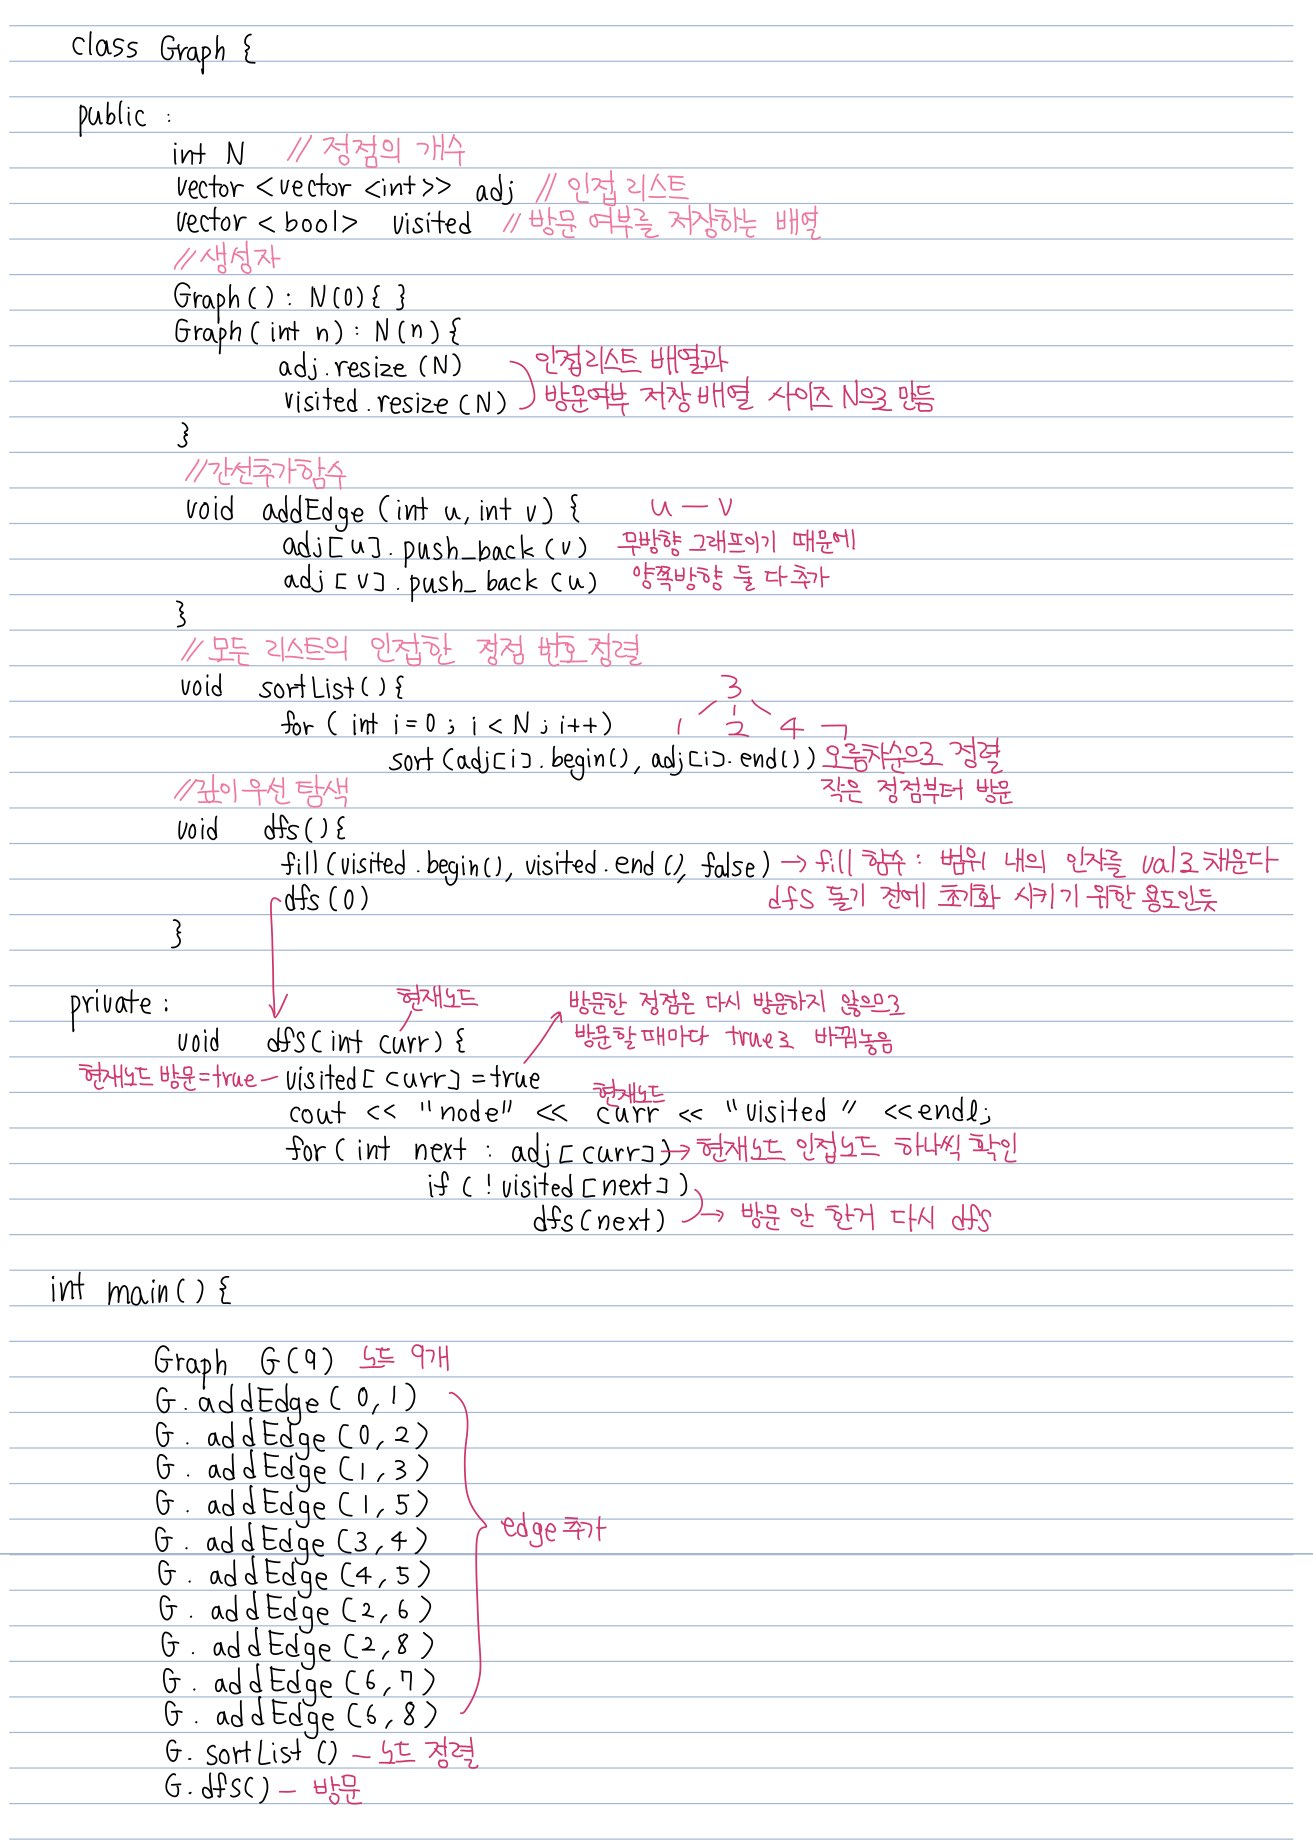 class Graph {
public :
int N // 정점의 개수
vector <vector <int>> adj // 인접 리스트
vector < bool> visited // 방문 여부를 저장하는 배열
// 생성자
Graph() : N(0){ }
Graph(int n) : N(n){
adj.resize (N) 인접리스트 배열과
visited.resize (N) 방문여부 저장 배열 사이즈 N으로 만듬
}
//간선추가함수
void addEdge (int u, int v) { u — v
adj[u].push_back (v) 무방향 그래프이기 때문에
adj[v].push_back (u) 양쪽방향 둘 다 추가
}
// 모든 리스트의 인접한 정점 번호 정렬
void sortList(){ 3
for ( int i=0 ; i < N ; i++) 1 2 4 ㄱ
sort (adj[i].begin(), adj[i].end()) 오름차순으로 정렬
작은 정점부터 방문
//깊이 우선 탐색
void dfs(){
fill(visited.begin(), visited.end(), false) → fill 함수 : 범위 내의 인자를 val로 채운다
dfs(0) dfs 돌기 전에 초기화 시키기 위한 용도인듯
}
private :
현재노드 방문한 정점은 다시 방문하지 않으므로
void dfs(int curr) { 방문할때마다 true로 바꿔놓음
현재노드 방문=true – visited[curr] = true
현재노드
cout << "node" << curr << "visited" <<endl;
for( int next : adj[curr]) → 현재노드 인접노드 하나씩 확인
if ( ! visited[next])
dfs(next) → 방문 안 한거 다시 dfs
int main() {
Graph G(9) 노드 9개
G. addEdge ( 0, 1)
G. addEdge (0, 2)
G. addEdge (1, 3)
G. addEdge (1, 5)
G. addEdge (3, 4)
edge 추가
G. addEdge (4, 5)
G. addEdge (2, 6)
G. addEdge (2, 8)
G. addEdge (6, 7)
G. addEdge (6, 8)
G. sortList () – 노드 정렬
G.dfs() – 방문